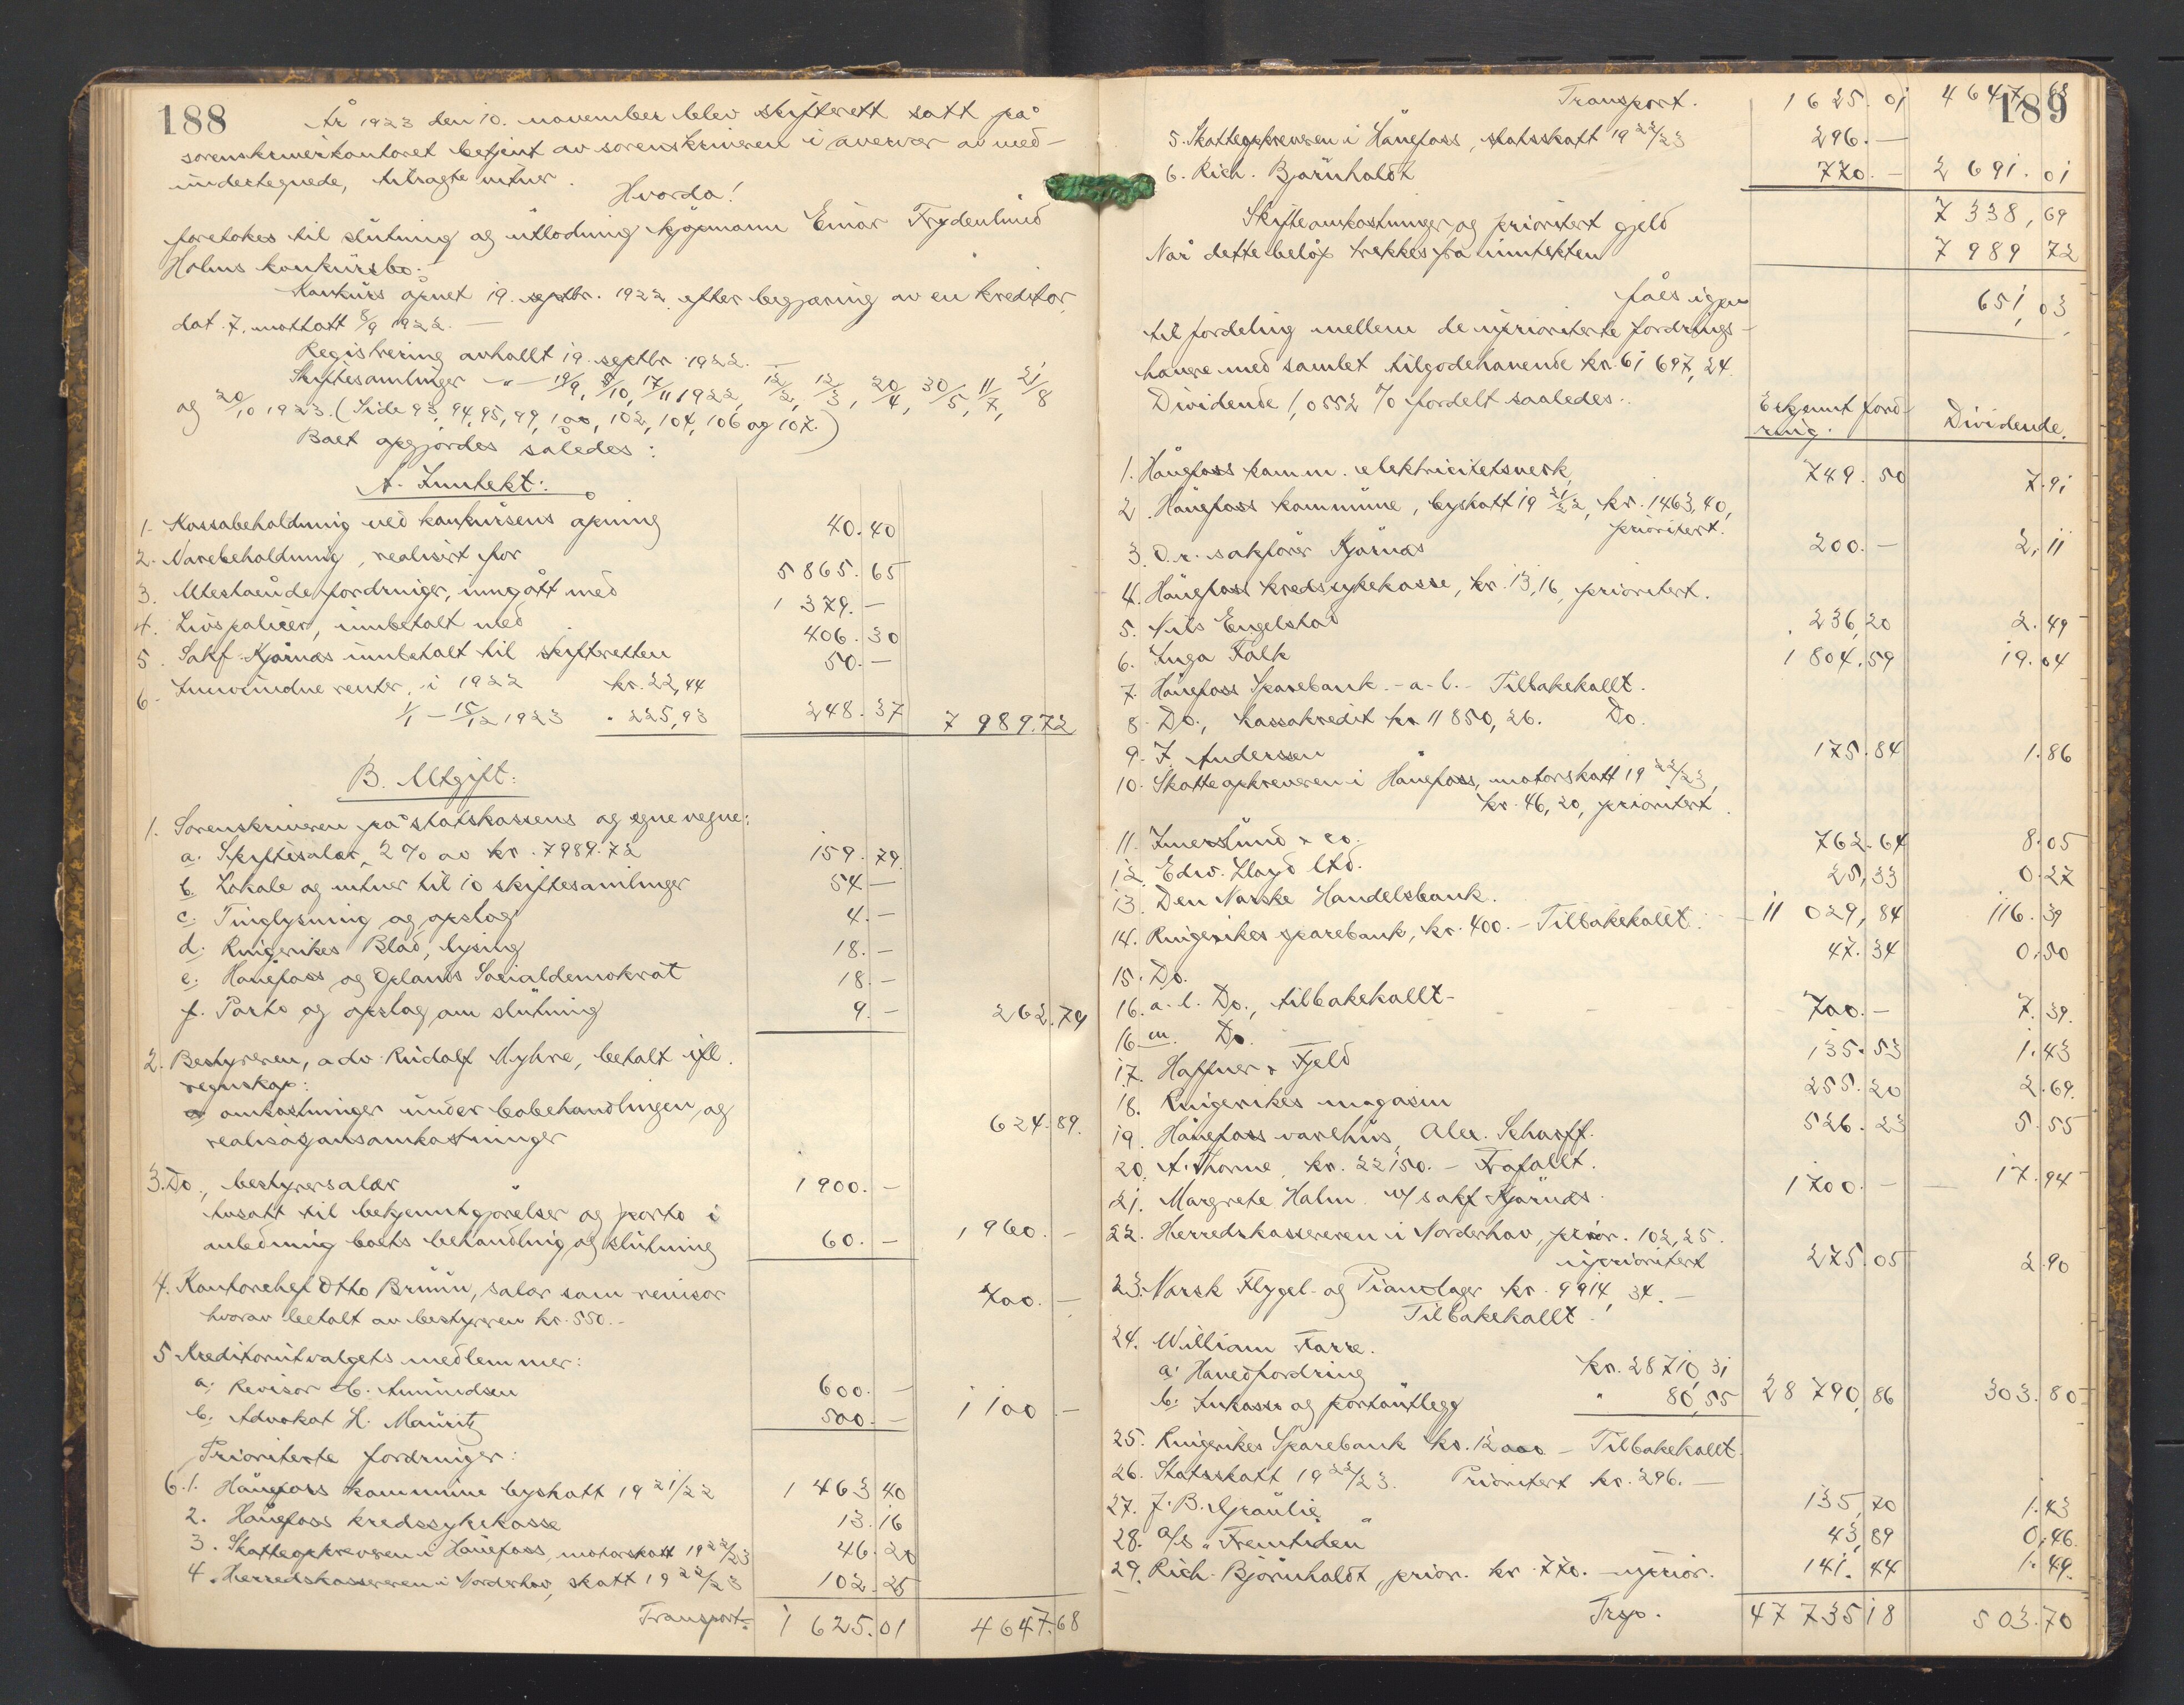 188
År 1923 den 10. november blev skifterett satt på
sorenskriverkontoret betjent av sorenskriveren i overvær av med-
undertegnede, tilsagte vitner.
Hvorda!
foretokes til slutning og utlodning kjøpmann Einar Frydenlund
Holms konkursbo:
Konkurs åpnet 19. septbr. 1922 efter begjæring av en kreditor,
dat. 7. mottatt 8/9 1922. —
Registrering avholt 19. septbr. 1922. —
Skiftesamlinger -"- 19/9, 5/10, 17/11 1922, 12/2, 12/3, 20/4, 30/5, 11/7, 21/8
og 20/10 1923. (Side 93, 94, 95, 99, 100, 102, 104, 106 og 107.)
Boet opgjordes således:
A. Inntekt:
1. Kassabeholdning ved konkursens åpning 40.40
2. Varebeholdning, realisert for 5 865.65
3. Utestående fordringer, inngått med 1 379.—
4. Livspoliser, innbetalt med 406.30
5. Sakf. Kjørnæs innbetalt til skifteretten 50.—
6. Innvundne renter, i 1922 kr. 22,44
1/1 – 15/12 1923 " 225,93 248.37 7 989.72
B. Utgift:
1. Sorenskriveren på statskassens og egne vegne:
a. Skiftesalær, 2% av kr. 7989.72 159.79
b. Lokale og vitner til 10 skiftesamlinger 54 —
c. Tinglysning og opslag 4.—
d. Ringerikes Blad, lysing 18.—
e. Hønefoss og Oplands Socialdemokrat 18.—
f. Porto og opslag om slutning 9.— 262.79
2. Bestyreren, adv. Rudolf Myhre, betalt ifl.
regnskap:
omkostninger under bobehandlingen, og
realisasjonsomkostninger 624.89.
3. Do., bestyrersalær 1 900.—
tilsatt til bekjentgjørelser og porto i
anledning boets behandling og slutning 60.— 1 960.—
4. Kontorchef Otto Bruun, salær som revisor 700.—
hvorav betalt av bestyreren kr. 550.—
5 Kreditorutvalgets medlemmer:
a. Revisor C. Amundsen 600.—
b. Advokat H. Mauritz 500.— 1 100 —
Prioriterte fordringer:
6.1. Hønefoss kommune byskatt 19 21/22 1 463 40
2. Hønefoss kredssykekasse 13.16
3. Skatteopkreveren i Hønefoss, motorskatt 19 22/23 46.20
4. Herredskassereren i Norderhov, skatt 19 22/23 102.25
Transport: 1 625.01 4 647.68
189
Transport. 1 625.01 4 647,68
5. Skatteopkreveren i Hønefoss, statsskatt 19 22/23 296.—
6. Rich. Bjørnholdt 770.— 2 691.01
Skifteomkostninger og prioritert gjeld 7 338,69
Når dette beløp trekkes fra inntekten 7 989 72
fåes igjen 651,03
til fordeling mellem de uprioriterte fordrings-
havere med samlet tilgodehavende kr. 61 697,24.
Dividende 1,0552 % fordelt saaledes:
Erkjennt ford-
ring. Dividende.
1. Hønefoss komm. elektricitetsverk 749.50 7.91
2. Hønefoss kommune, byskatt 19 21/22, kr. 1463,40,
prioritert.
3. O.r. sakfører Kjørnæs 200.— 2.11
4. Hønefoss kredssykekasse, kr. 13,16, prioritert.
5. Nils Engelstad 236,20 2.49
6. Inga Falk 1 804.59 19.04
7. Hønefoss Sparebank. - a-l. - Tilbakekallt.
8. Do., kassakredit kr. 11 850,26. Do.
9. J. Anderssen 175.84 1.86
10. Skatteopkreveren i Hønefoss, motorskatt 19 22/23,
kr. 46,20, prioritert.
11. Imerslund & co. 762.64 8.05
12. Edw. Lloyd ltd. 25,33 0.27
13. Den Norske Handelsbank. 11 029,84 116.39
14. Ringerikes sparebank, kr. 400.— Tilbakekallt.
15. Do. 47.34 0.50
16. a-l. Do., tilbakekallt -
16. m. Do. 700.— 7.39.
17. Haffner & Fjeld 135.53 1.43
18. Ringerikes magasin 255.20 2.69.
19. Hønefoss varehus, Alex. Scharff. 526.23 5.55
20. A. Thorne, kr. 22150.— Frafallt.
21. Margrete Holm v/ sakf. Kjørnæs. 1 700.— 17.94
22. Herredskassereren i Norderhov, prior. 102,25.
uprioritert 275.05 2.90
23. Norsk Flygel- og Pianolager kr. 9 914,34. —
Tilbakekallt.
24. William Farre.
a. Hovedfordring kr. 28710,31
b. Inkasso og portoutlegg " 80,55 28 790,86 303.80
25. Ringerikes Sparebank kr. 12000 — Tilbakekallt.
26. Statsskatt 19 22/23. Prioritert kr. 296.—
27. J. B. Graulie 135,70 1.43
28. A/S "Fremtiden" 43,89 0,46.
29. Rich. Bjørnholdt, prior. kr. 770. — uprior. 141.44 1.49.
Trsp. 47 735 18 503.70